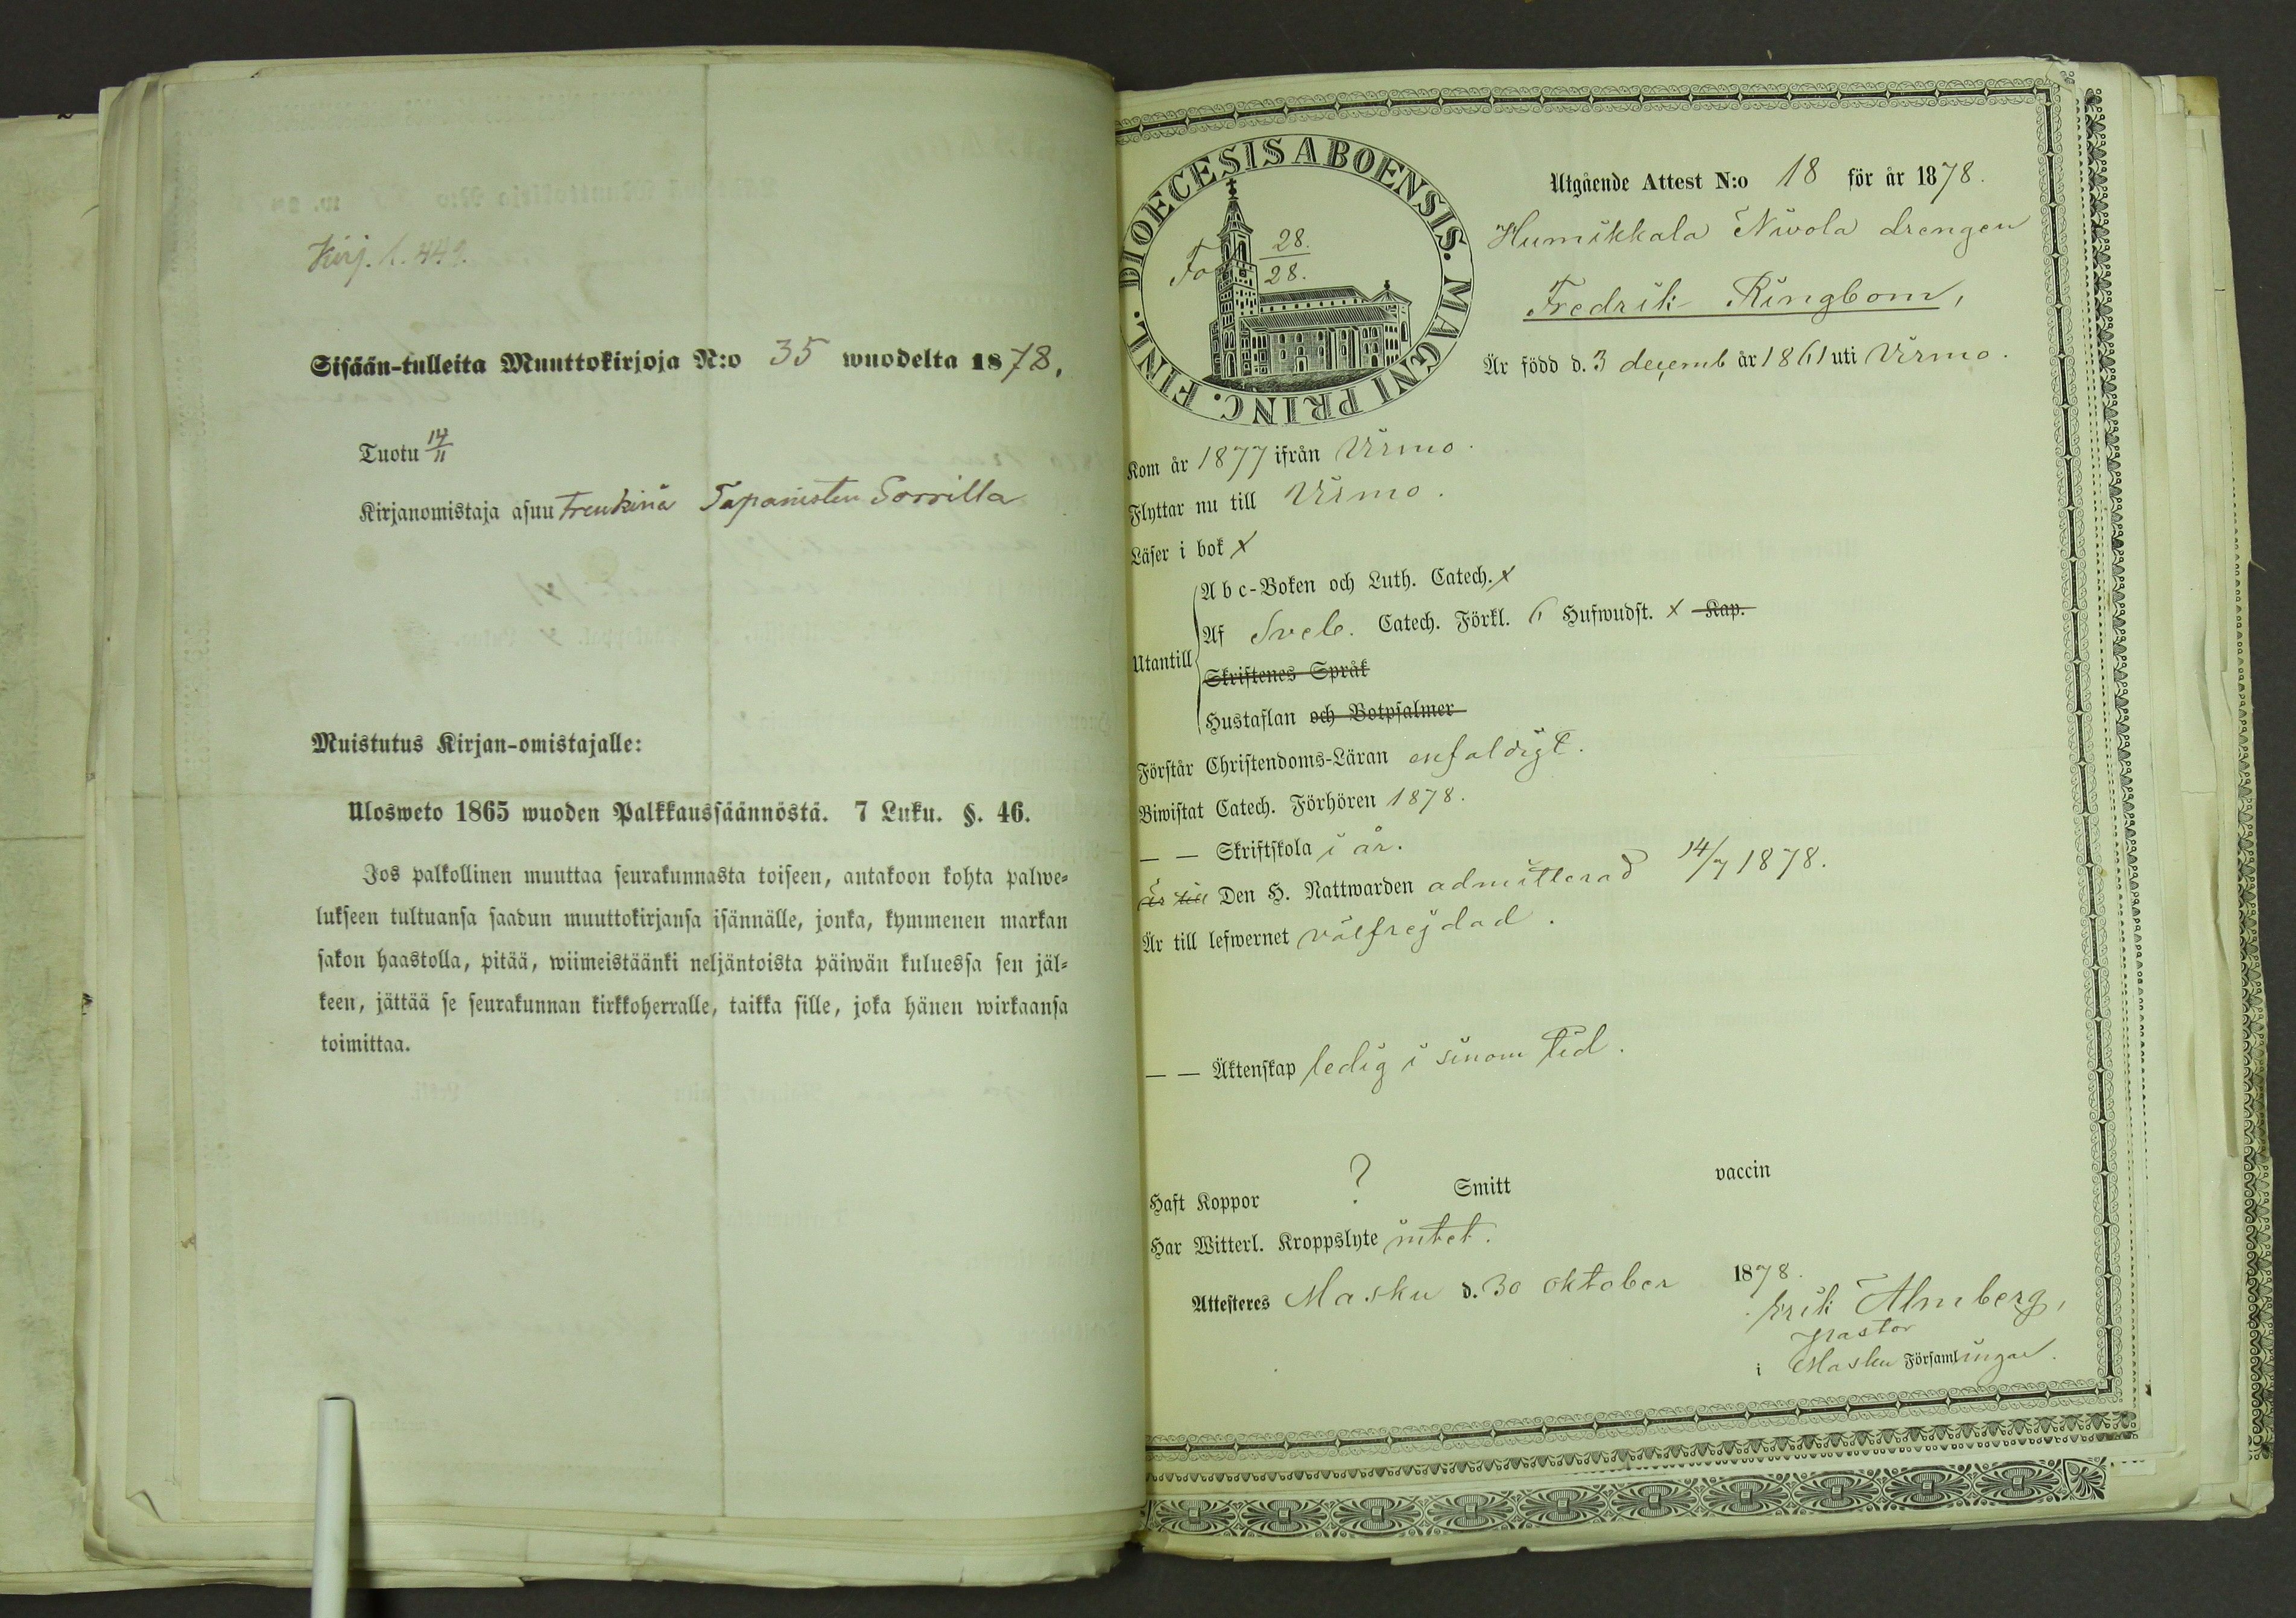 Kirj. s. 449.
Sisään-tulleita Muuttokirjoja N:o 35 wuodelta 1878,
Tuotu 14/11
Kirjanomistaja asuu Trenkinä Tapanisten Sorrilla
Muistutus Kirjan-omistajalle:
Ulosweto 1865 wuoden Palkkaussäännöstä. 7 Luku. §. 46.
Jos palkollinen muuttaa seurakunnasta toiseen, antakoon kohta palwe-
lukseen tultuansa saadun muuttokirjansa isännälle, jonka, kymmenen markan
sakon haastolla, pitää, wiimeistäänki neljäntoista päiwän kuluessa sen jäl-
keen, jättää se seurakunnan kirkkoherralle, taikka sille, joka hänen wirkaansa
toimittaa.
DIOECESIS ABOENSIS. MAGNI PRINC. FINL.
Fol 28./28.
Utgående Attest N:o 18 för år 1878.
Humikkala Nivola drengen
Fredrik Ringbom,
Är född d. 3 decemb år 1861 uti Virmo.
Kom år 1877 ifrån Virmo.
Flyttar nu till Virmo.
Läser i bok x
Utantill
A b c-Boken och Luth. Catech. x
Af Sveb. Catech. Förkl. 6 Hufwudst. x Kap.
Skriftenes Språk
Hustaflan och Botpsalmer
Förstår Christendoms-Läran enfaldigt.
Biwistat Catech. Förhören 1878.
— — Skriftskola i år.
Är till Den H. Nattwarden admitterad 14/7 1878.
Är till lefwernet välfrejdad.
— — Äktenskap ledig i sinom tid.
Haft Koppor ? Smitt vaccin
Har Witterl. Kroppslyte intet.
Attesteres Masku d. 30 oktober 1878.
Erik Almberg,
Pastor
i Masku Församlingar.